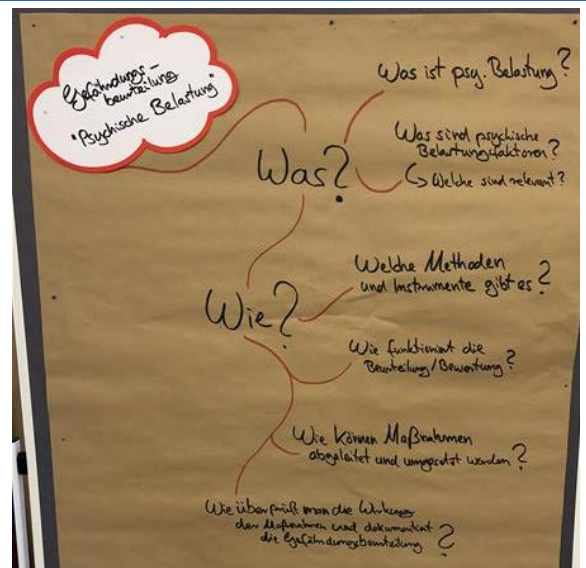 Gefährdungs-
beurteilung
"Psychische Belastung"
Was?
Was ist psy. Belastung?
Was sind psychische
Belastungsfaktoren?
↳ Welche sind relevant?
Wie?
Welche Methoden
und Instrumente gibt es?
Wie funktioniert die
Beurteilung/Bewertung?
Wie können Maßnahmen
abgeleitet und umgesetzt werden?
Wie überprüft man die Wirkung
der Maßnahmen und dokumentiert
die Gefährdungsbeurteilung?